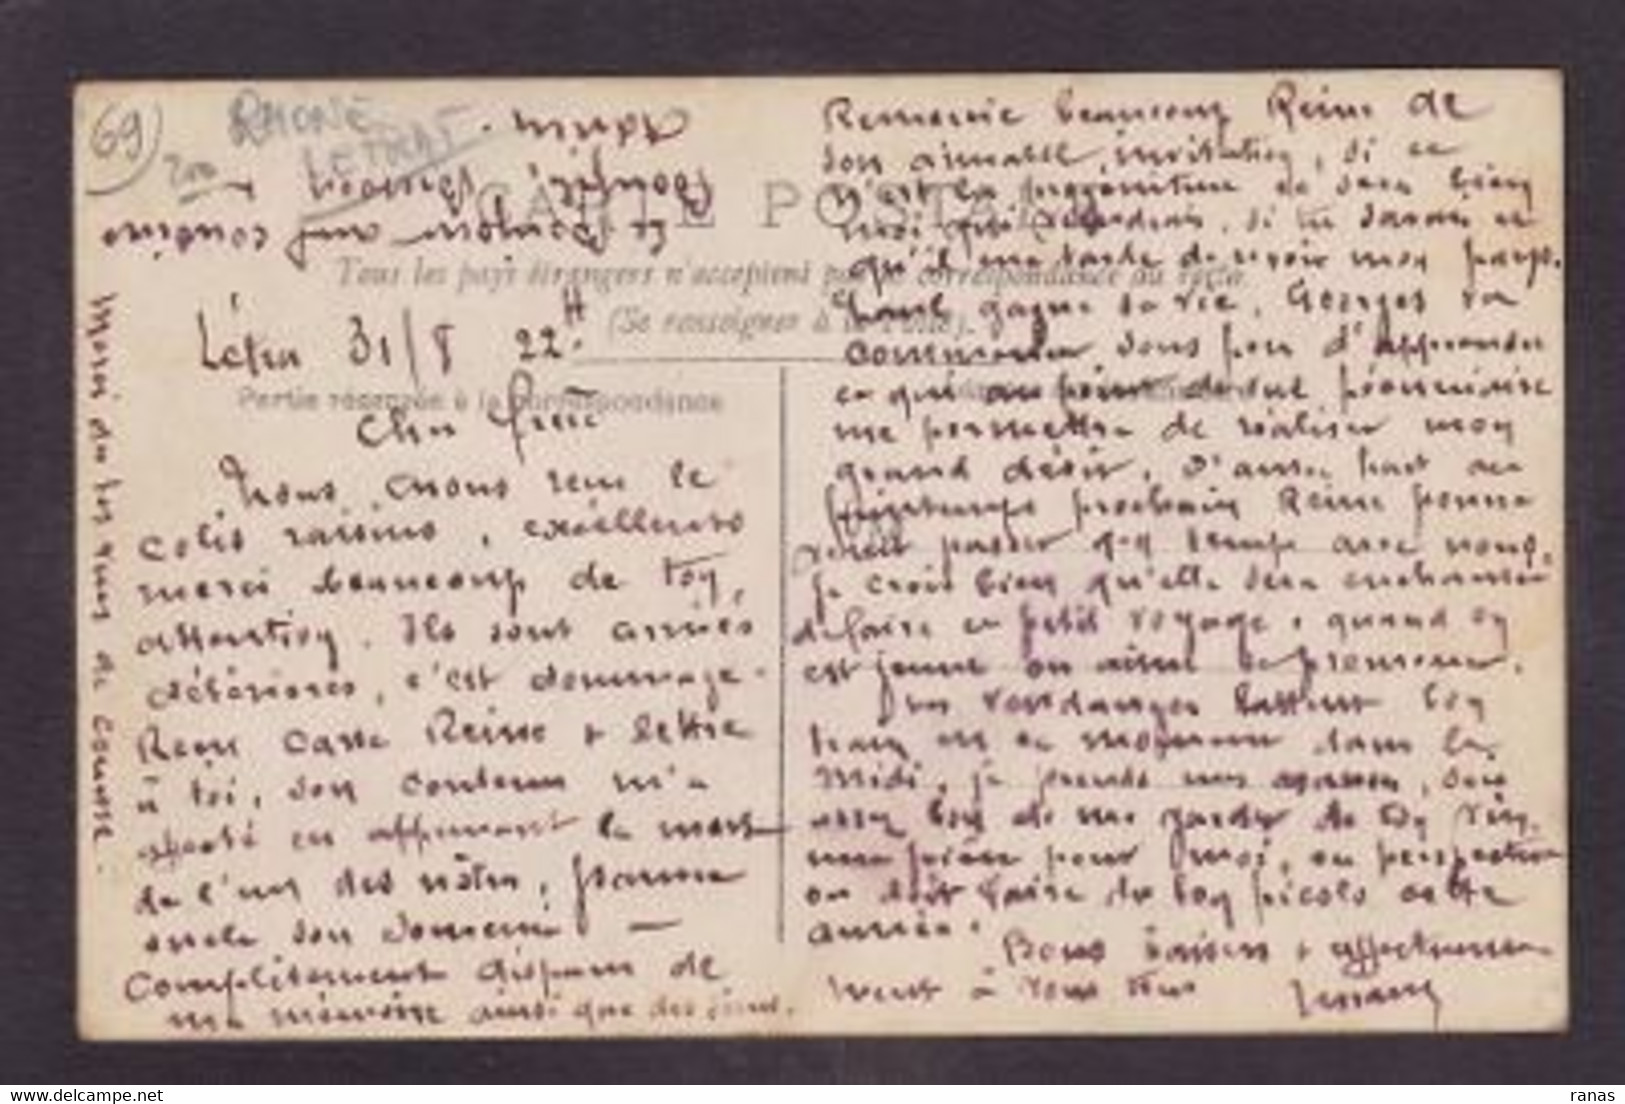 69
200
RHONE
LETRAT
CARTE POSTALE
Tous les pays étrangers n'acceptent pas la correspondance au recto
(Se renseigner à la Poste).
Partie réservée à la correspondance
Létra 31/8 22H
Cher frère
Nous avons reçu le
colis raisins, excellents
merci beaucoup de ton
attention. Ils sont arrivés
détériorés, c'est dommage.
Reçu carte Reine & lettre
à toi, son contenu m'a
en apprenant la mort
de l'un des nôtres,
oncle son
Complètement disparu de
ma mémoire ainsi que des siens.
Remercie beaucoup Reine de
son aimable invitation, si ce
n'est la progéniture ce sera bien
moi qui, si tu savais ce
qu'il me tarde de revoir mon pays.
Paul gagne sa vie, Georges va
commencer sous peu d'apprendre
ce qui au point de vue pécuniaire
me permettra de réaliser mon
grand désir. D'autre part au
printemps prochain Reine pourra
venir passer q.q temps avec nous,
je crois bien qu'elle sera enchantée
de faire ce petit voyage, quand on
est jeune on aime se promener.
Les vendanges battent leur
train en ce moment dans le
Midi, je prends mes, sois
assez bon de me garder de ton vin
une pièce pour moi, en perspective
on doit faire du bon picolo cette
année.
Bons baisers & affectueuse
ment à vous tous
Merci du bon vieux de Cousse.
Le bonjour aux cousins